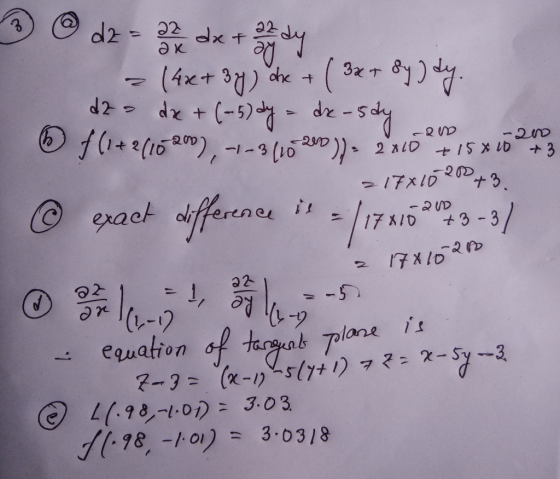 3 a dz = ∂z/∂x dx + ∂z/∂y dy
= (4x + 3y) dx + (3x + 8y) dy.
dz = dx + (-5) dy = dx - 5dy
b f(1+2(10^-200), -1-3(10^-200)) = 2×10^-200 + 15×10^-200 + 3
= 17×10^-200 + 3.
c exact difference is = |17×10^-200 + 3 - 3|
= 17×10^-200
d ∂z/∂x |(1,-1) = 1, ∂z/∂y |(1,-1) = -5
∴ equation of tangent plane is
z - 3 = (x-1) - 5(y+1) → z = x - 5y - 3
e L(.98, -1.01) = 3.03.
f(.98, -1.01) = 3.0318